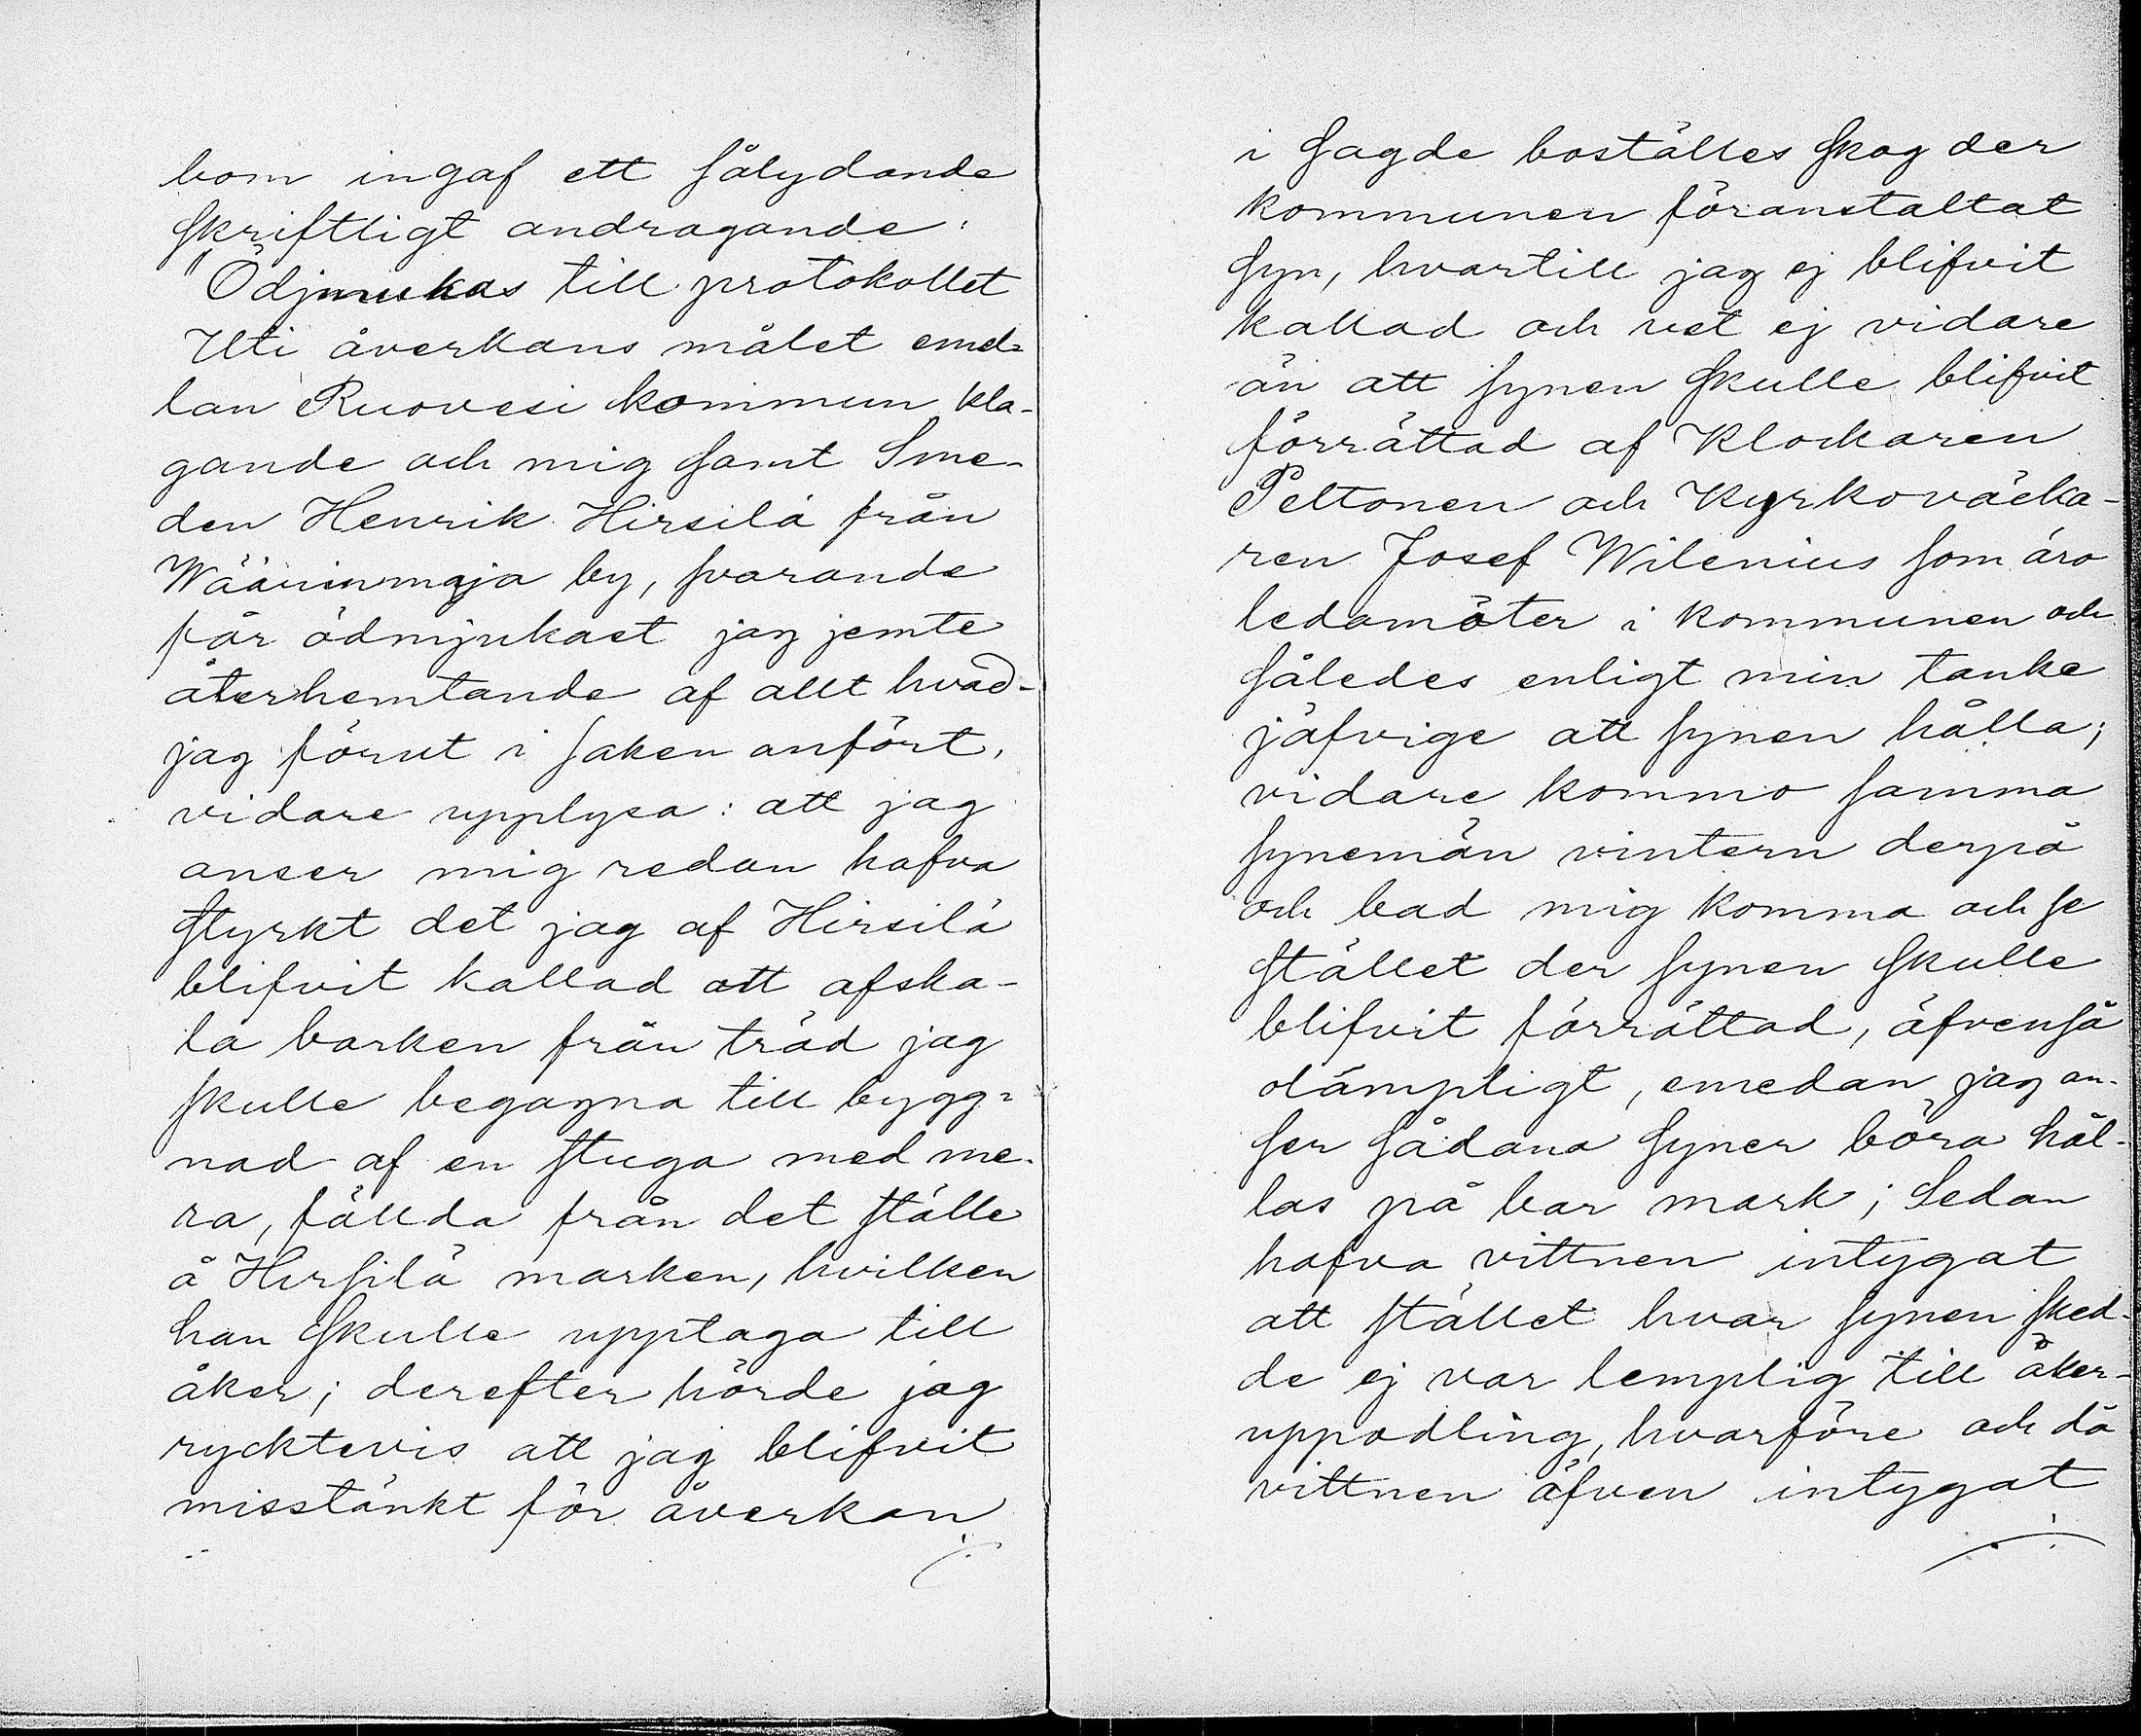 bom ingaf ett sålydande
skriftligt andragande:
"Ödjmukas till protokollet
Uti åverkans målet emel-
lan Ruovesi kommun kla-
gande och mig samt Sme-
den Henrik Hirsilä från
Wäärinmaja by, svarande
får ödmjukast jag jemte
återhemtande af allt hvad-
jag förut i saken anfört,
vidare upplysa: att jag
anser mig redan hafva
styrkt det jag af Hirsilä
blifvit kallad att afska-
la barken från träd jag
skulle begagna till bygg-
nad af en stuga med me-
ra, fällda från det ställe
å Hirsilä marken, hvilken
han skulle upptaga till
åker; derefter hörde jag
ryktevis att jag blifvit
misstänkt för åverkan
i sagde boställes skog der
kommunen föranstaltat
syn, hvartill jag ej blifvit
kallad och vet ej vidare
än att synen skulle blifvit
förrättad af Klockaren
Peltonen och Kyrkoväcka-
ren Josef Wilenius som äro
ledamöter i kommunen och
således enligt min tanke
jäfvige att synen hålla;
vidare kommo samma
synemän vintern derpå
och bad mig komma och se
stället der synen skulle
blifvit förrättad, äfvenså
olämpligt, emedan jag an-
ser sådana syner böra hål-
las på bar mark; Sedan
hafva vittnen intygat
att stället hvar synen sked-
de ej var lemplig till åker-
uppodling, hvarföre och då
vittnen äfven intygat